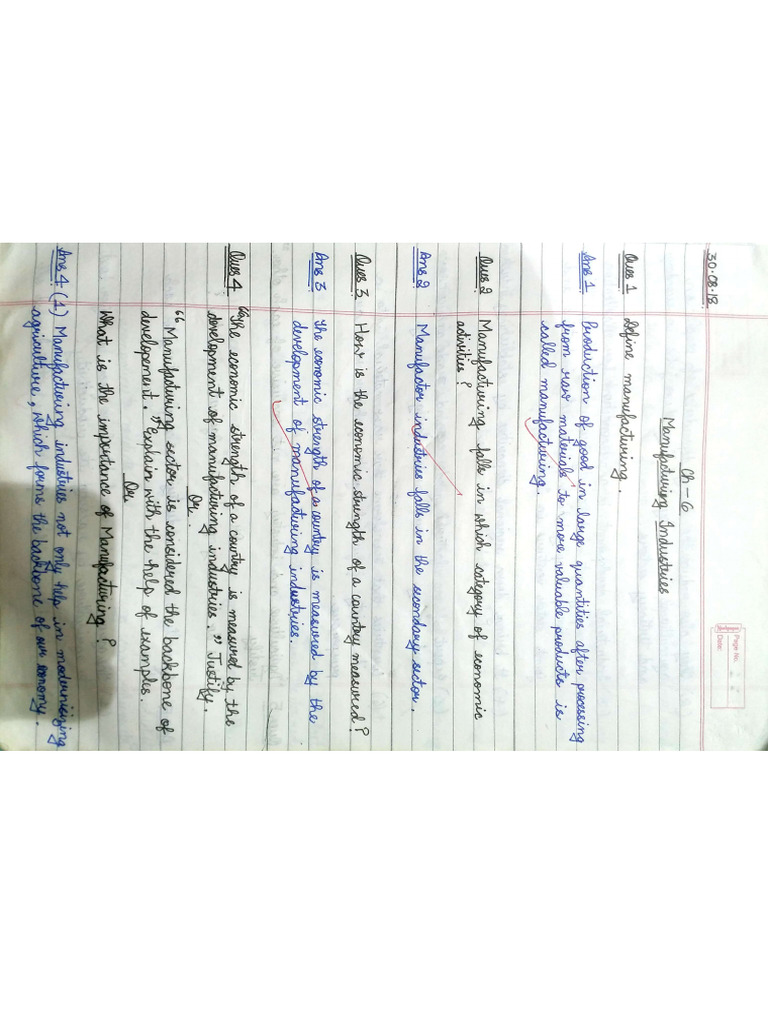 Page No.
Date:
30.08.18
Ch-6
Manufacturing Industries
Ques 1 Define manufacturing.
Ans 1 Production of good in large quantities after processing
from raw materials to more valuable products is
called manufacturing.
Ques 2 Manufacturing falls in which category of economic
activities?
Ans 2 Manufactor industries falls in the secondary sector.
Ques 3 How is the economic strength of a country measured?
Ans 3 The economic strength of a country is measured by the
development of manufacturing industries.
Ques 4 "The economic strength of a country is measured by the
development of manufacturing industries." Justify.
Or.
"Manufacturing sector is considered the backbone of
development." Explain with the help of examples.
Or
What is the importance of Manufacturing?
Ans 4 (1) Manufacturing industries not only help in modernisizing
agriculture, which forms the backbone of our economy.